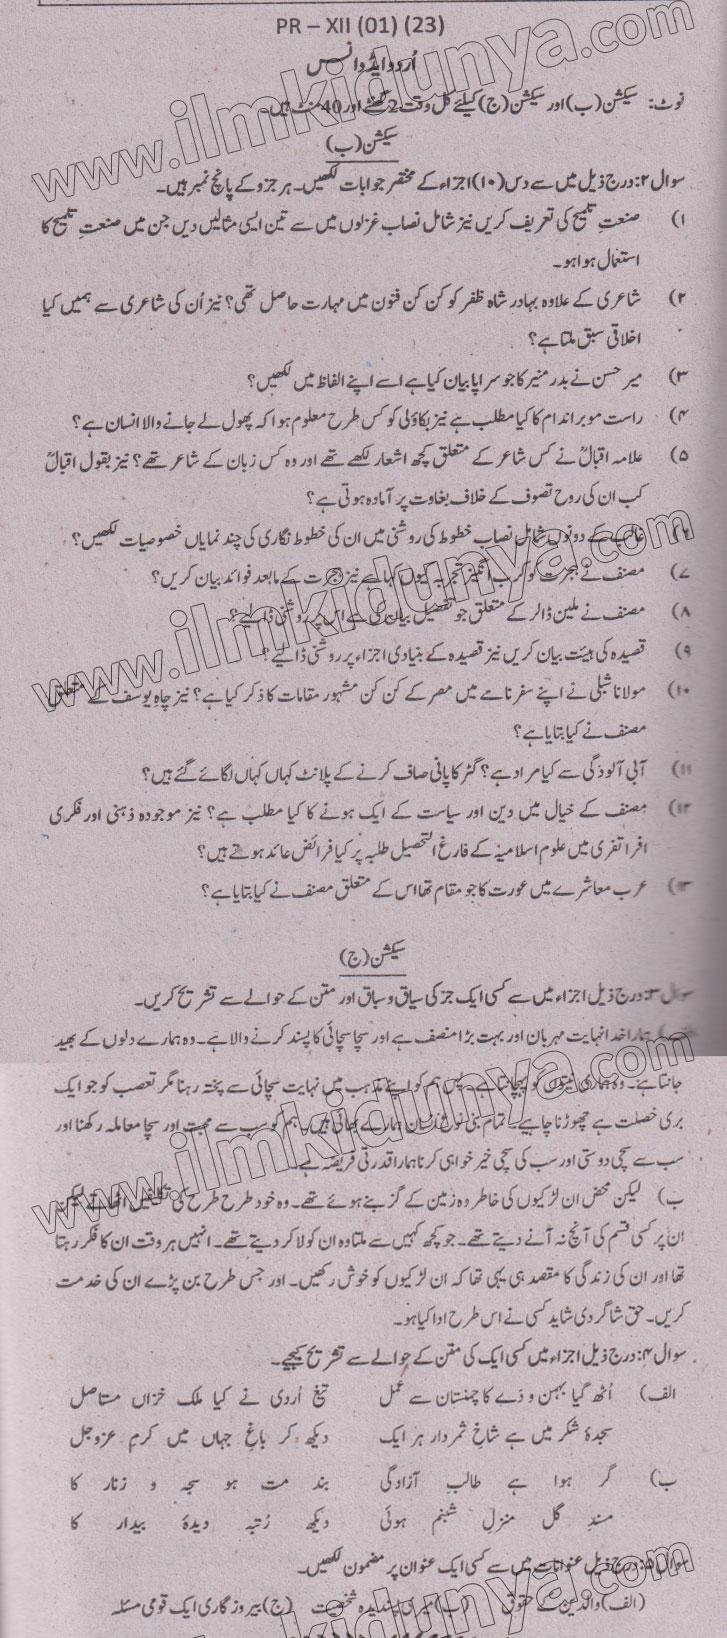 PR – XII (01) (23)
اُردو ایڈوانس
نوٹ: سیکشن (ب) اور سیکشن (ج) کیلئے کل وقت 2 گھنٹے اور 40 منٹ ہیں۔
سیکشن (ب)
سوال ۲: درج ذیل میں سے دس (۱۰) اجزاء کے مختصر جوابات لکھیں۔ ہر جزو کے پانچ نمبر ہیں۔
۱) صنعتِ تلمیح کی تعریف کریں نیز شامل نصاب غزلوں میں سے تین ایسی مثالیں دیں جن میں صنعتِ تلمیح کا
استعمال ہوا ہو۔
۲) شاعری کے علاوہ بہادر شاہ ظفر کو کن کن فنون میں مہارت حاصل تھی؟ نیز اُن کی شاعری سے ہمیں کیا
اخلاقی سبق ملتا ہے؟
۳) میر حسن نے بدر منیر کا جو سراپا بیان کیا ہے اسے اپنے الفاظ میں لکھیں؟
۴) راست مو بر اندام کا کیا مطلب ہے نیز بکاؤلی کو کس طرح معلوم ہوا کہ پھول لے جانے والا انسان ہے؟
۵) علامہ اقبالؒ نے کس شاعر کے متعلق کچھ اشعار لکھے تھے اور وہ کس زبان کے شاعر تھے؟ نیز بقول اقبالؒ
کب ان کی روح تصوف کے خلاف بغاوت پر آمادہ ہوتی ہے؟
۶) غالب کے دونوں شامل نصاب خطوط کی روشنی میں ان کی خطوط نگاری کی چند نمایاں خصوصیات لکھیں؟
۷) مصنف نے ہجرت کو کرب انگیز تجربہ کیوں کہا ہے نیز ہجرت کے مابعد فوائد بیان کریں؟
۸) مصنف نے ملین ڈالر کے متعلق جو تفصیل بیان کی ہے اس پر روشنی ڈالیے؟
۹) قصیدہ کی ہیئت بیان کریں نیز قصیدہ کے بنیادی اجزاء پر روشنی ڈالیے؟
۱۰) مولانا شبلی نے اپنے سفر نامے میں مصر کے کن کن مشہور مقامات کا ذکر کیا ہے؟ نیز چاہِ یوسف کے متعلق
مصنف نے کیا بتایا ہے؟
۱۱) آبی آلودگی سے کیا مراد ہے؟ گٹر کا پانی صاف کرنے کے پلانٹ کہاں کہاں لگائے گئے ہیں؟
۱۲) مصنف کے خیال میں دین اور سیاست کے ایک ہونے کا کیا مطلب ہے؟ نیز موجودہ ذہنی اور فکری
افراتفری میں علوم اسلامیہ کے فارغ التحصیل طلبہ پر کیا فرائض عائد ہوتے ہیں؟
۱۳) عرب معاشرے میں عورت کا جو مقام تھا اس کے متعلق مصنف نے کیا بتایا ہے؟
سیکشن (ج)
سوال ۳: درج ذیل اجزاء میں سے کسی ایک جز کی سیاق و سباق اور متن کے حوالے سے تشریح کریں۔
ہمارا خدا نہایت مہربان اور بہت بڑا منصف ہے اور سچا سچائی کا پسند کرنے والا ہے۔ وہ ہمارے دلوں کے بھید
جانتا ہے۔ وہ ہماری نیتوں کو پہچانتا ہے۔ پس ہم کو اپنے مذہب میں نہایت سچائی سے پختہ رہنا مگر تعصب کو جو ایک
بری خصلت ہے چھوڑنا چاہیے۔ تمام بنی نوع انسان ہمارے بھائی ہیں۔ ہم کو سب سے محبت اور سچا معاملہ رکھنا اور
سب سے سچی دوستی اور سب کی سچی خیر خواہی کرنا ہمارا قدرتی فریضہ ہے۔
ب) لیکن محض ان لڑکیوں کی خاطر وہ زمین کے گز بنے ہوئے تھے۔ وہ خود طرح طرح کی تکلیفیں اٹھاتے لیکن
ان پر کسی قسم کی آنچ نہ آنے دیتے تھے۔ جو کچھ کہیں سے ملتا وہ ان کو لا کر دیتے تھے۔ انہیں ہر وقت ان کا فکر رہتا
تھا اور ان کی زندگی کا مقصد ہی یہی تھا کہ ان لڑکیوں کو خوش رکھیں۔ اور جس طرح بن پڑے ان کی خدمت
کریں۔ حق شاگردی شاید کسی نے اس طرح ادا کیا ہو۔
سوال ۴: درج ذیل اجزاء میں کسی ایک کی متن کے حوالے سے تشریح کیجیے۔
الف) اُٹھ گیا بہمن و دَے کا چمنستان سے عمل تیغ اُردی نے کیا ملک خزاں مستاصل
سجدۂ شکر میں ہے شاخِ ثمردار ہر ایک دیکھ کر باغِ جہاں میں کرمِ عزوجل
ب) گر ہوا ہے طالبِ آزادگی بند مت ہو سبحہ و زنار کا
مسندِ گل منزلِ شبنم ہوئی دیکھ رُتبہ دیدۂ بیدار کا
سوال ۵: درج ذیل عنوانات میں سے کسی ایک عنوان پر مضمون لکھیں۔
(الف) والدین کے حقوق (ب) میری پسندیدہ شخصیت (ج) بیروزگاری ایک قومی مسئلہ
www.ilmkidunya.com
www.ilmkidunya.com
www.ilmkidunya.com
www.ilmkidunya.com